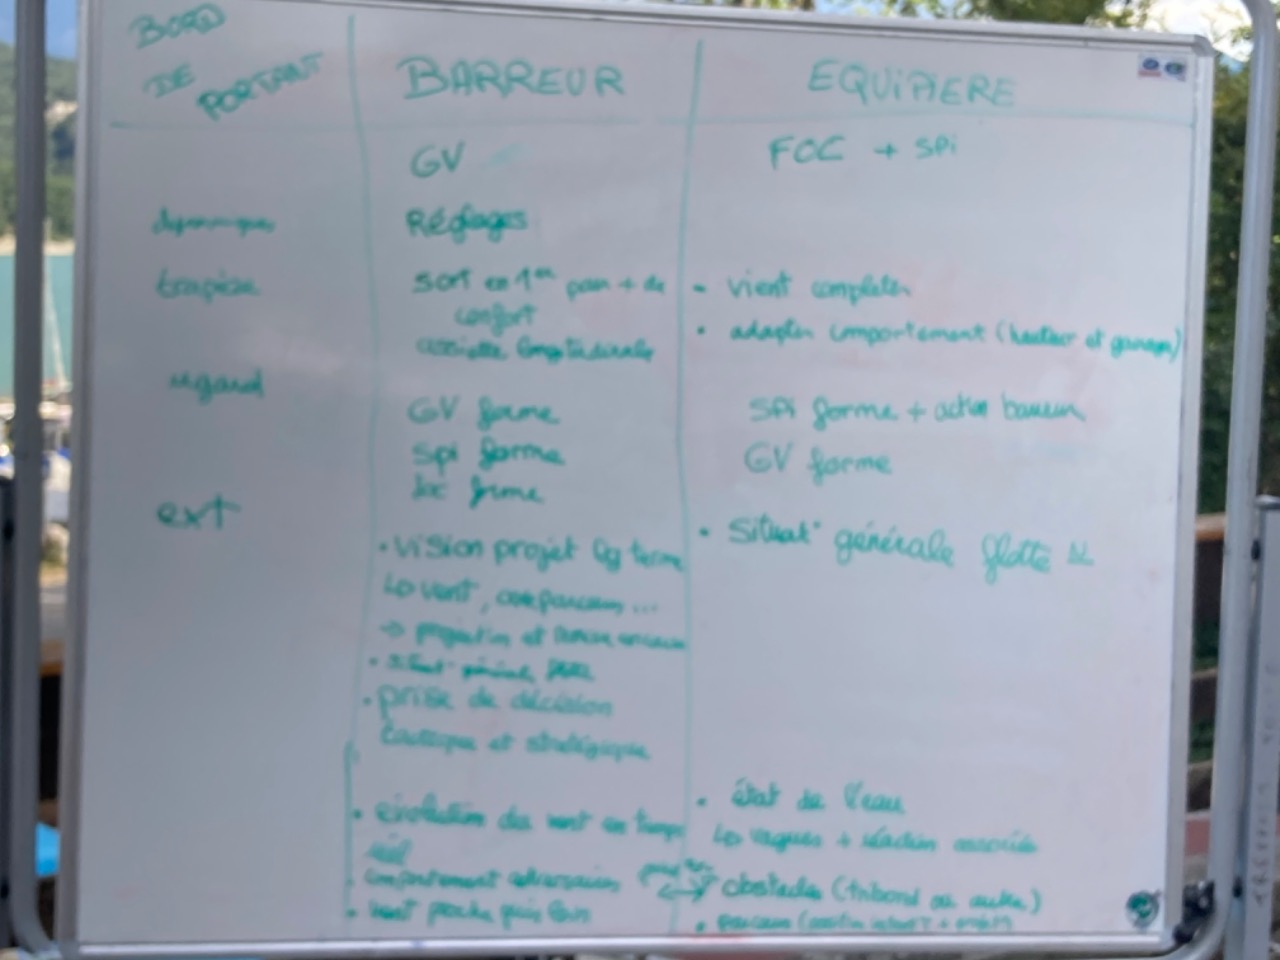 BORD
DE PORTANT
BARREUR
EQUIPIERE
GV
FOC + SPi
dynamique
Réglages
trapèze
sort en 1er pour + de
confort
assiette longitudinale
- vient completer
• adapter comportement (hauteur et gamme)
regard
GV forme
Spi forme
foc forme
SPi forme + action barreur
GV forme
ext
• vision projet lg terme
↳ vent,
→ projection et
• situat° générale flotte
• prise de décision
tactique et stratégique
• Situat° générale flotte
• évolution du vent en temps
réel
• comportement adversaires
• vent proche puis loin
• état de l'eau
↳ vagues + réaction associée
↔ obstacles (tribord ou autre)
• parcours